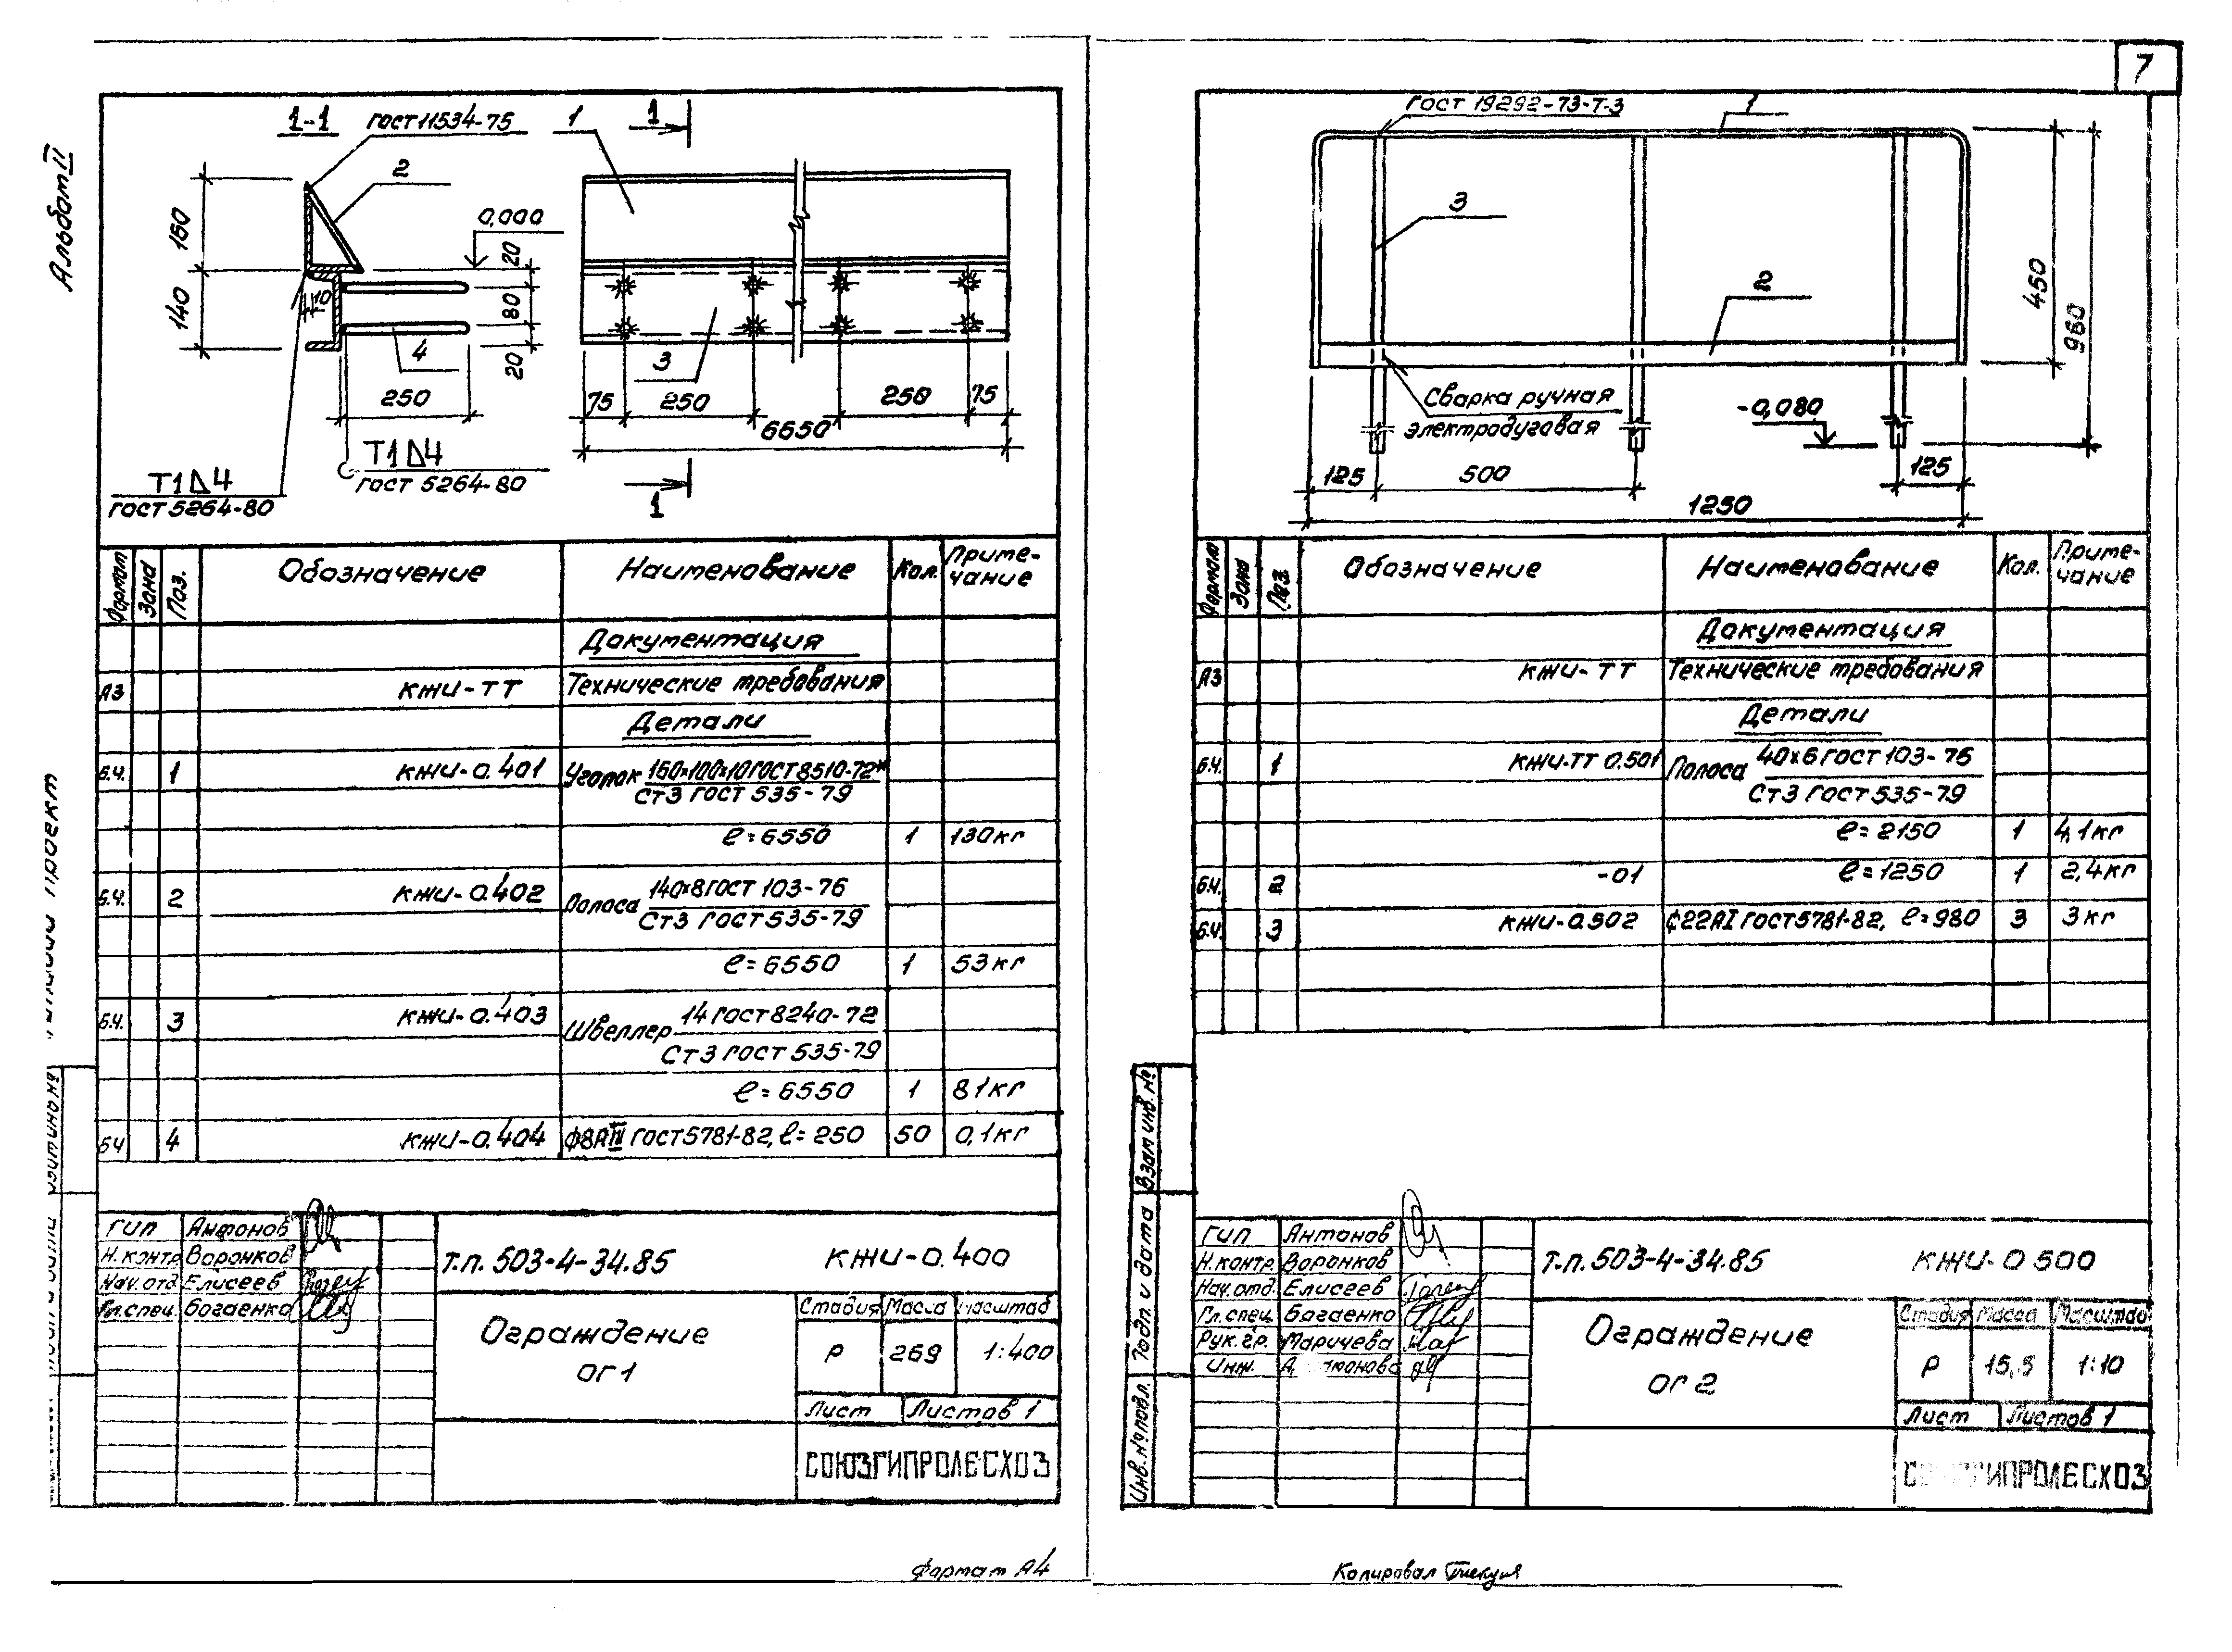 7
Альбом II
1-1
ГОСТ 11534-75
1
1
2
160
0,000
20
140
10
80
4
20
3
250
75
250
250
75
6650
Т1⊿4
ГОСТ 5264-80
Т1⊿4
ГОСТ 5264-80
1
Формат
Зона
Поз.
Обозначение
Наименование
Кол.
Приме-
чание
Документация
А3 КЖИ-ТТ Технические требования
Детали
Б.Ч. 1 КЖИ-0.401 Уголок 160×100×10 ГОСТ 8510-72*
Ст3 ГОСТ 535-79
ℓ=6550 1 130кг
Б.Ч. 2 КЖИ-0.402 Полоса 140×8 ГОСТ 103-76
Ст3 ГОСТ 535-79
ℓ=6550 1 53кг
Б.Ч. 3 КЖИ-0.403 Швеллер 14 ГОСТ 8240-72
Ст3 ГОСТ 535-79
ℓ=6550 1 81кг
Б.Ч 4 КЖИ-0.404 ф8АIII ГОСТ 5781-82, ℓ=250 50 0,1кг
ГИП Антонов
Н.контр Воронков
Нач.отд Елисеев
Гл.спец. Богаенко
Т.п. 503-4-34.85
КЖИ-0.400
Ограждение
ОГ1
Стадия Масса Масштаб
Р 269 1:400
Лист Листов 1
СОЮЗГИПРОЛЕСХОЗ
Формат А4
ГОСТ 19292-73-Т-3
1
3
2
450
960
Сварка ручная
электродуговая
-0,080
125
500
125
1250
Формат
Зона
Поз.
Обозначение
Наименование
Кол.
Приме-
чание
Документация
А3 КЖИ-ТТ Технические требования
Детали
Б.Ч. 1 КЖИ-ТТ 0.501 Полоса 40×6 ГОСТ 103-76
Ст3 ГОСТ 535-79
ℓ=2150 1 4,1кг
Б.Ч. 2 -01 ℓ=1250 1 2,4кг
Б.Ч. 3 КЖИ-0.502 ф22АI ГОСТ 5781-82, ℓ=980 3 3кг
Взам инв. №
Подп. и дата
Инв. № подл.
ГИП Антонов
Н.контр. Воронков
Нач.отд. Елисеев
Гл.спец. Богаенко
Рук.гр. Маричева
Инж.
Т.п. 503-4-34.85
КЖИ-0 500
Ограждение
ОГ 2
Стадия Масса Масштаб
Р 15,5 1:10
Лист Листов 1
СОЮЗГИПРОЛЕСХОЗ
Копировал